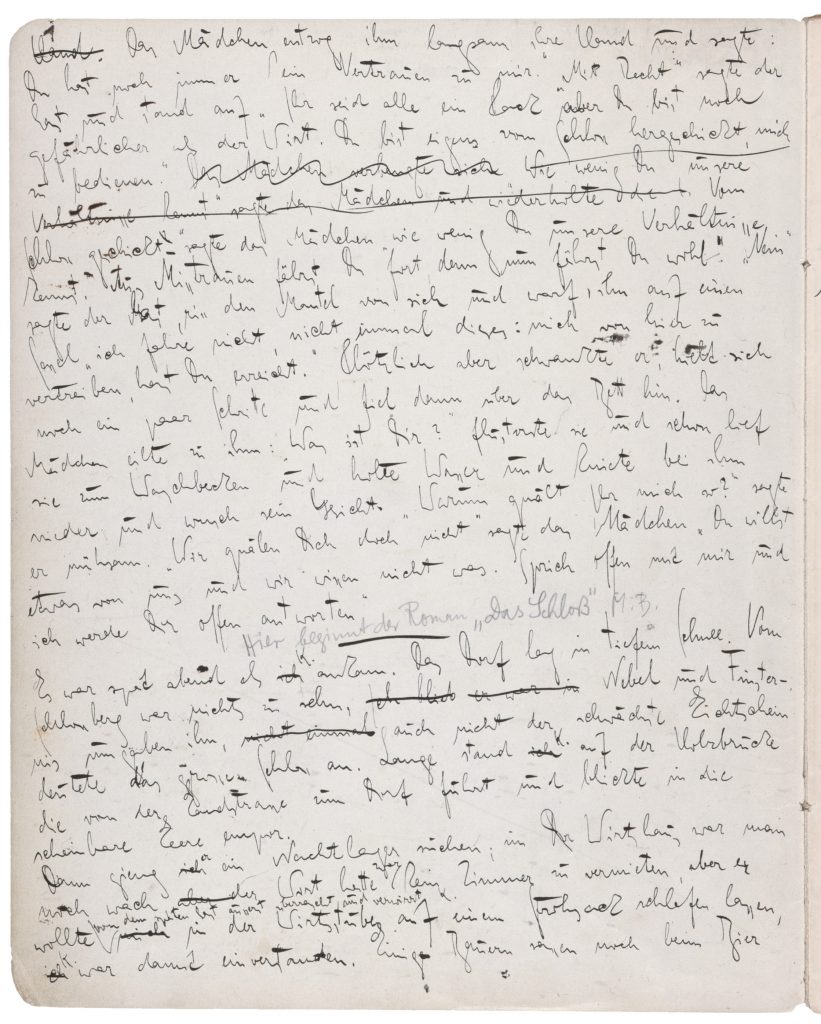 Hand. Das Mädchen entzog ihm langsam ihre Hand und sagte:
Du hast noch immer kein Vertrauen zu mir." "Mit Recht" sagte der
Gast und stand auf „Ihr seid alle ein Pack aber Du bist noch
gefährlicher als der Wirt. Du bist eigens vom Schloss hergeschickt, mich
zu bedienen." Das Mädchen verbeugte sich Wie wenig Du unsere
Verhältnisse kennst" sagte das Mädchen und wiederholte Vom
Schloss geschickt" sagte das Mädchen „wie wenig Du unsere Verhältnisse
kennst. Aus Misstrauen fährst Du fort denn nun fährst Du wohl." „Nein"
sagte der Gast, riss den Mantel von sich und warf ihn auf einen
„ich fahre nicht, nicht einmal dieses: mich von hier zu
vertreiben, hast Du erreicht." Plötzlich aber schwankte er, hielt sich
noch ein paar Schritte und fiel dann über das Bett hin. Das
Mädchen eilte zu ihm: Was ist Dir?" flüsterte sie und schon lief
sie zum Waschbecken und holte Wasser und kniete bei ihm
nieder und wusch sein Gesicht. „Warum quält Ihr mich so?" sagte
er mühsam. „Wir quälen Dich doch nicht" sagte das Mädchen „Du willst
etwas von uns und wir wissen nicht was. Sprich offen mit mir und
ich werde Dir offen antworten"
Hier beginnt der Roman „Das Schloß" M.B.
Es war spät abend als ich K. ankam. Das Dorf lag in tiefem Schnee. Vom
Schlossberg war nichts zu sehn, ich blick er war in Nebel und Finster-
nis umgaben ihn, nicht einmal auch nicht der schwächste Lichtschein
deutete das grosse Schloss an. Lange stand ich K. auf der Holzbrücke
die von der Landstrasse zum Dorf führt und blickte in die
scheinbare Leere empor.
Dann gieng ich er ein Nachtlager suchen; im Wirtshaus war man
noch wach aber der Wirt hatte zwar kein Zimmer zu vermieten, aber er
wollte von dem späten Gast äusserst überrascht und verwirrt
mich K. in der Wirtsstube auf einem Strohsack schlafen lassen,
ich K. war damit einverstanden. Einige Bauern sassen noch beim Bier